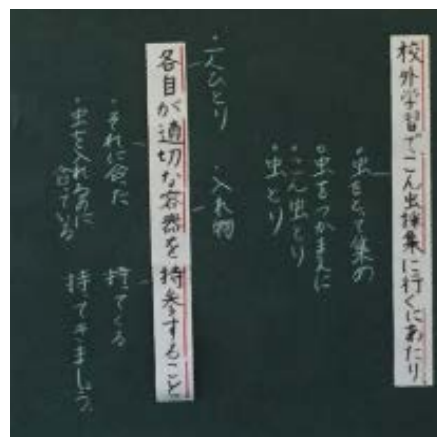 校外学習で、こん虫採集に行くにあたり
・虫をとって集め
・虫をつかまえに
・こん虫とり
・虫とり
・一人ひとり
・入れ物
各自が適切な容器を持参すること。
・それに合った
・虫を入れるのに
合っている
持てくる
持てきましょう。